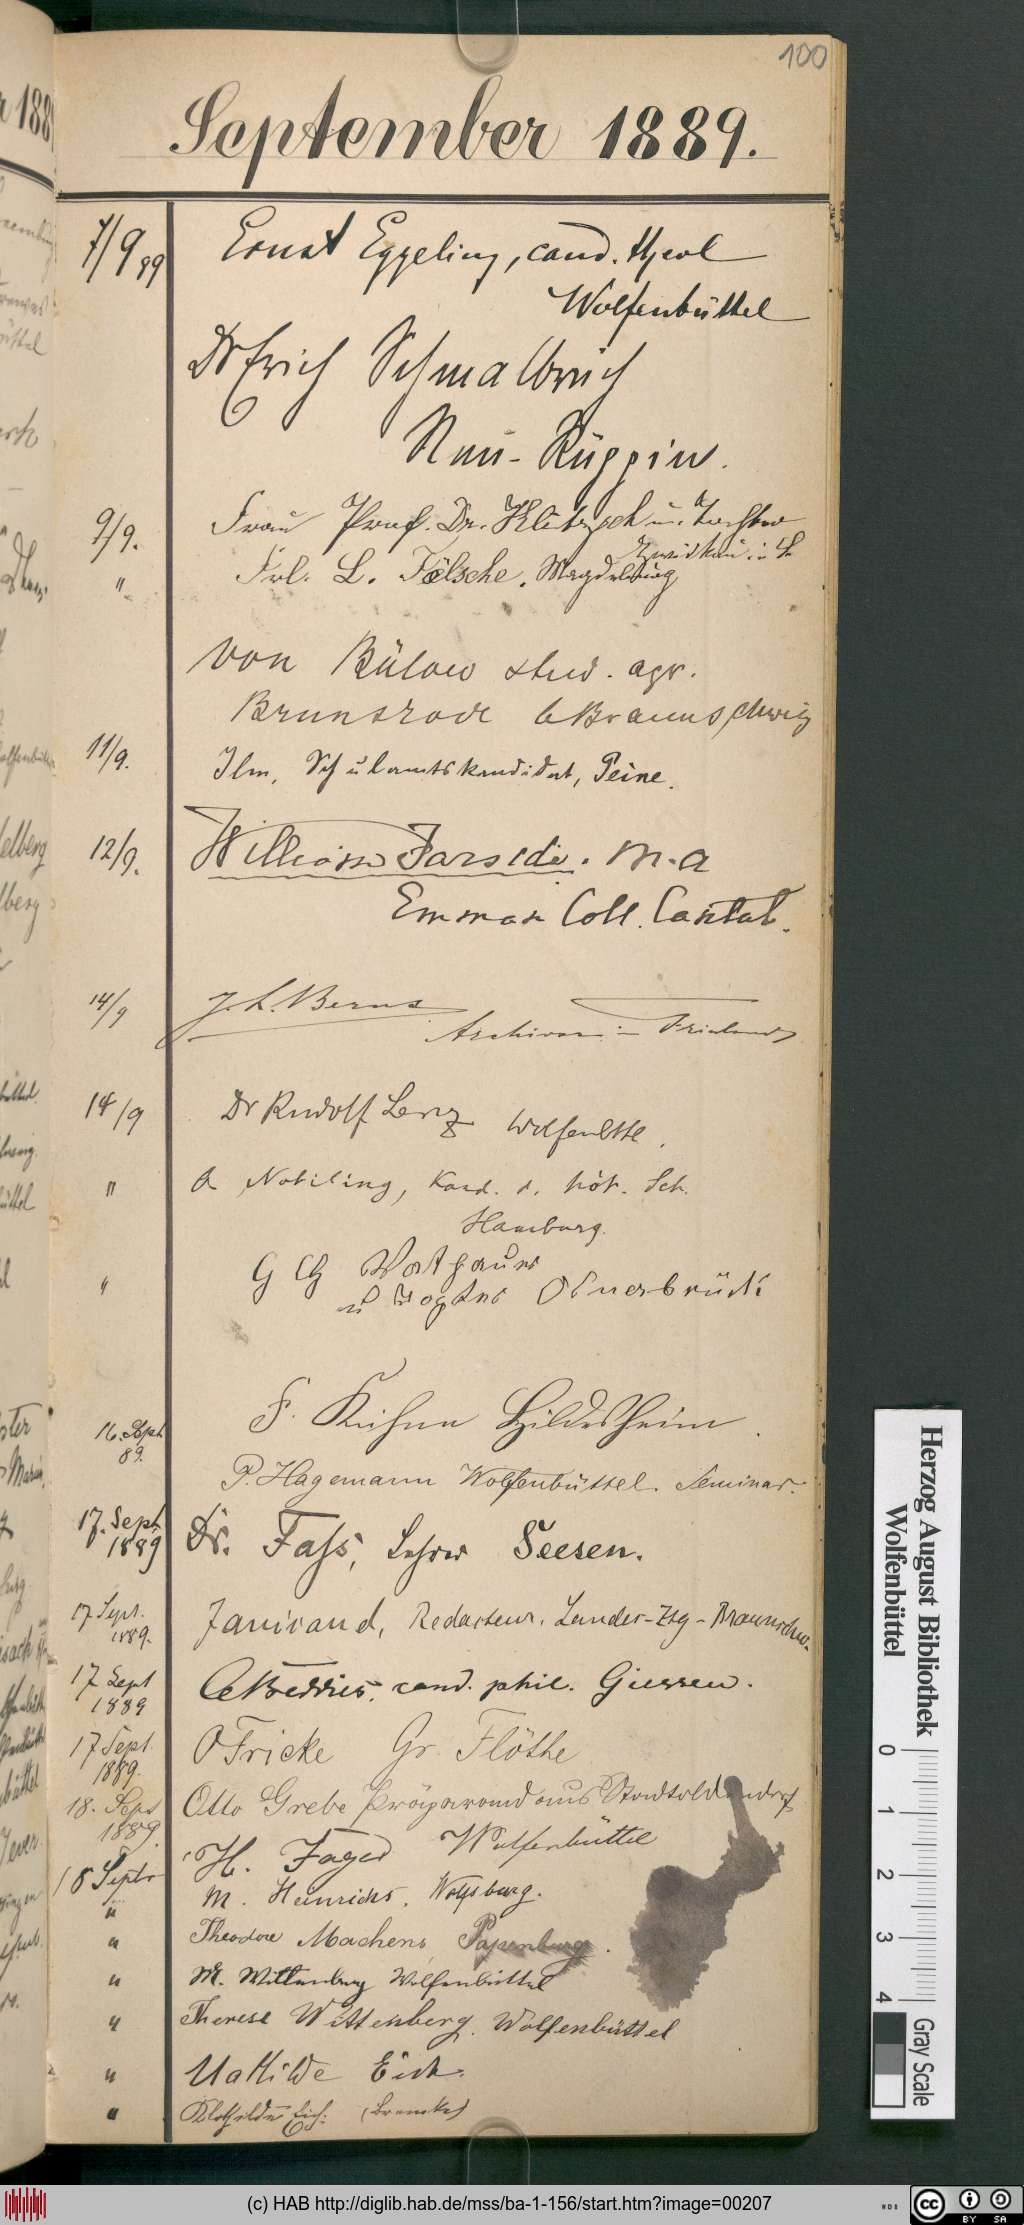 100
September 1889.
7/9 89 Ernst Eggeling, cand. theol
Wolfenbüttel
Dr Erich Schmalbruch
Neu-Ruppin.
9/9. Frau Prof. Dr. u. Tochter
Zwickau i. S.
" Frl. L. Fölsche, Magdeburg
von Bülow stud. agr.
Brunsrode b Braunschweig
11/9. Ilm, Schulamtskandidat, Peine.
12/9. William M.A
Emman Coll. Cantab.
14/9 J. L. Berns
Archivar in Friesland
14/9 Dr Rudolf Lenz Wolfenbttl.
" A Nobiling, Kand. d. höh. Sch.
Hamburg.
" G Ch
u Tochter Osnabrück
16. Sept. 89. F. Kuhne Hildesheim.
P. Hagemann Wolfenbüttel. Seminar.
17. Sept 1889 Dr. Fass, Lehrer Seesen.
17 Sept. 1889. Redacteur. Landes-Ztg-Braunschw.
17 Sept 1889 cand. phil. Giessen.
17 Sept. 1889. O Fricke Gr. Flöthe
18. Sept 1889. Otto Grebe Präparand aus Stadtoldendorf
18 Septr H. Jager Wolfenbüttel
" M. Heinrichs. Wolfsburg.
" Theodore Machens Papenburg.
" M. Wittenberg Wolfenbüttel
" Therese Wittenberg. Wolfenbüttel
" Mathilde Eich.
" Klothilde Eich.
Herzog August Bibliothek
Wolfenbüttel
0 1 2 3 4
Gray Scale
(c) HAB http://diglib.hab.de/mss/ba-1-156/start.htm?image=00207
WDB
cc BY SA